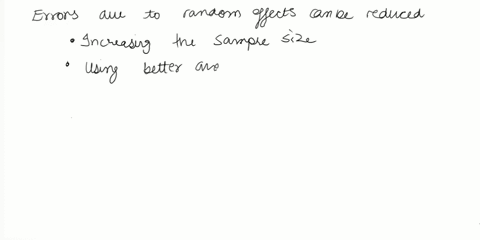 Errors due to random effects can be reduced
• Increasing the sample size
• Using better are